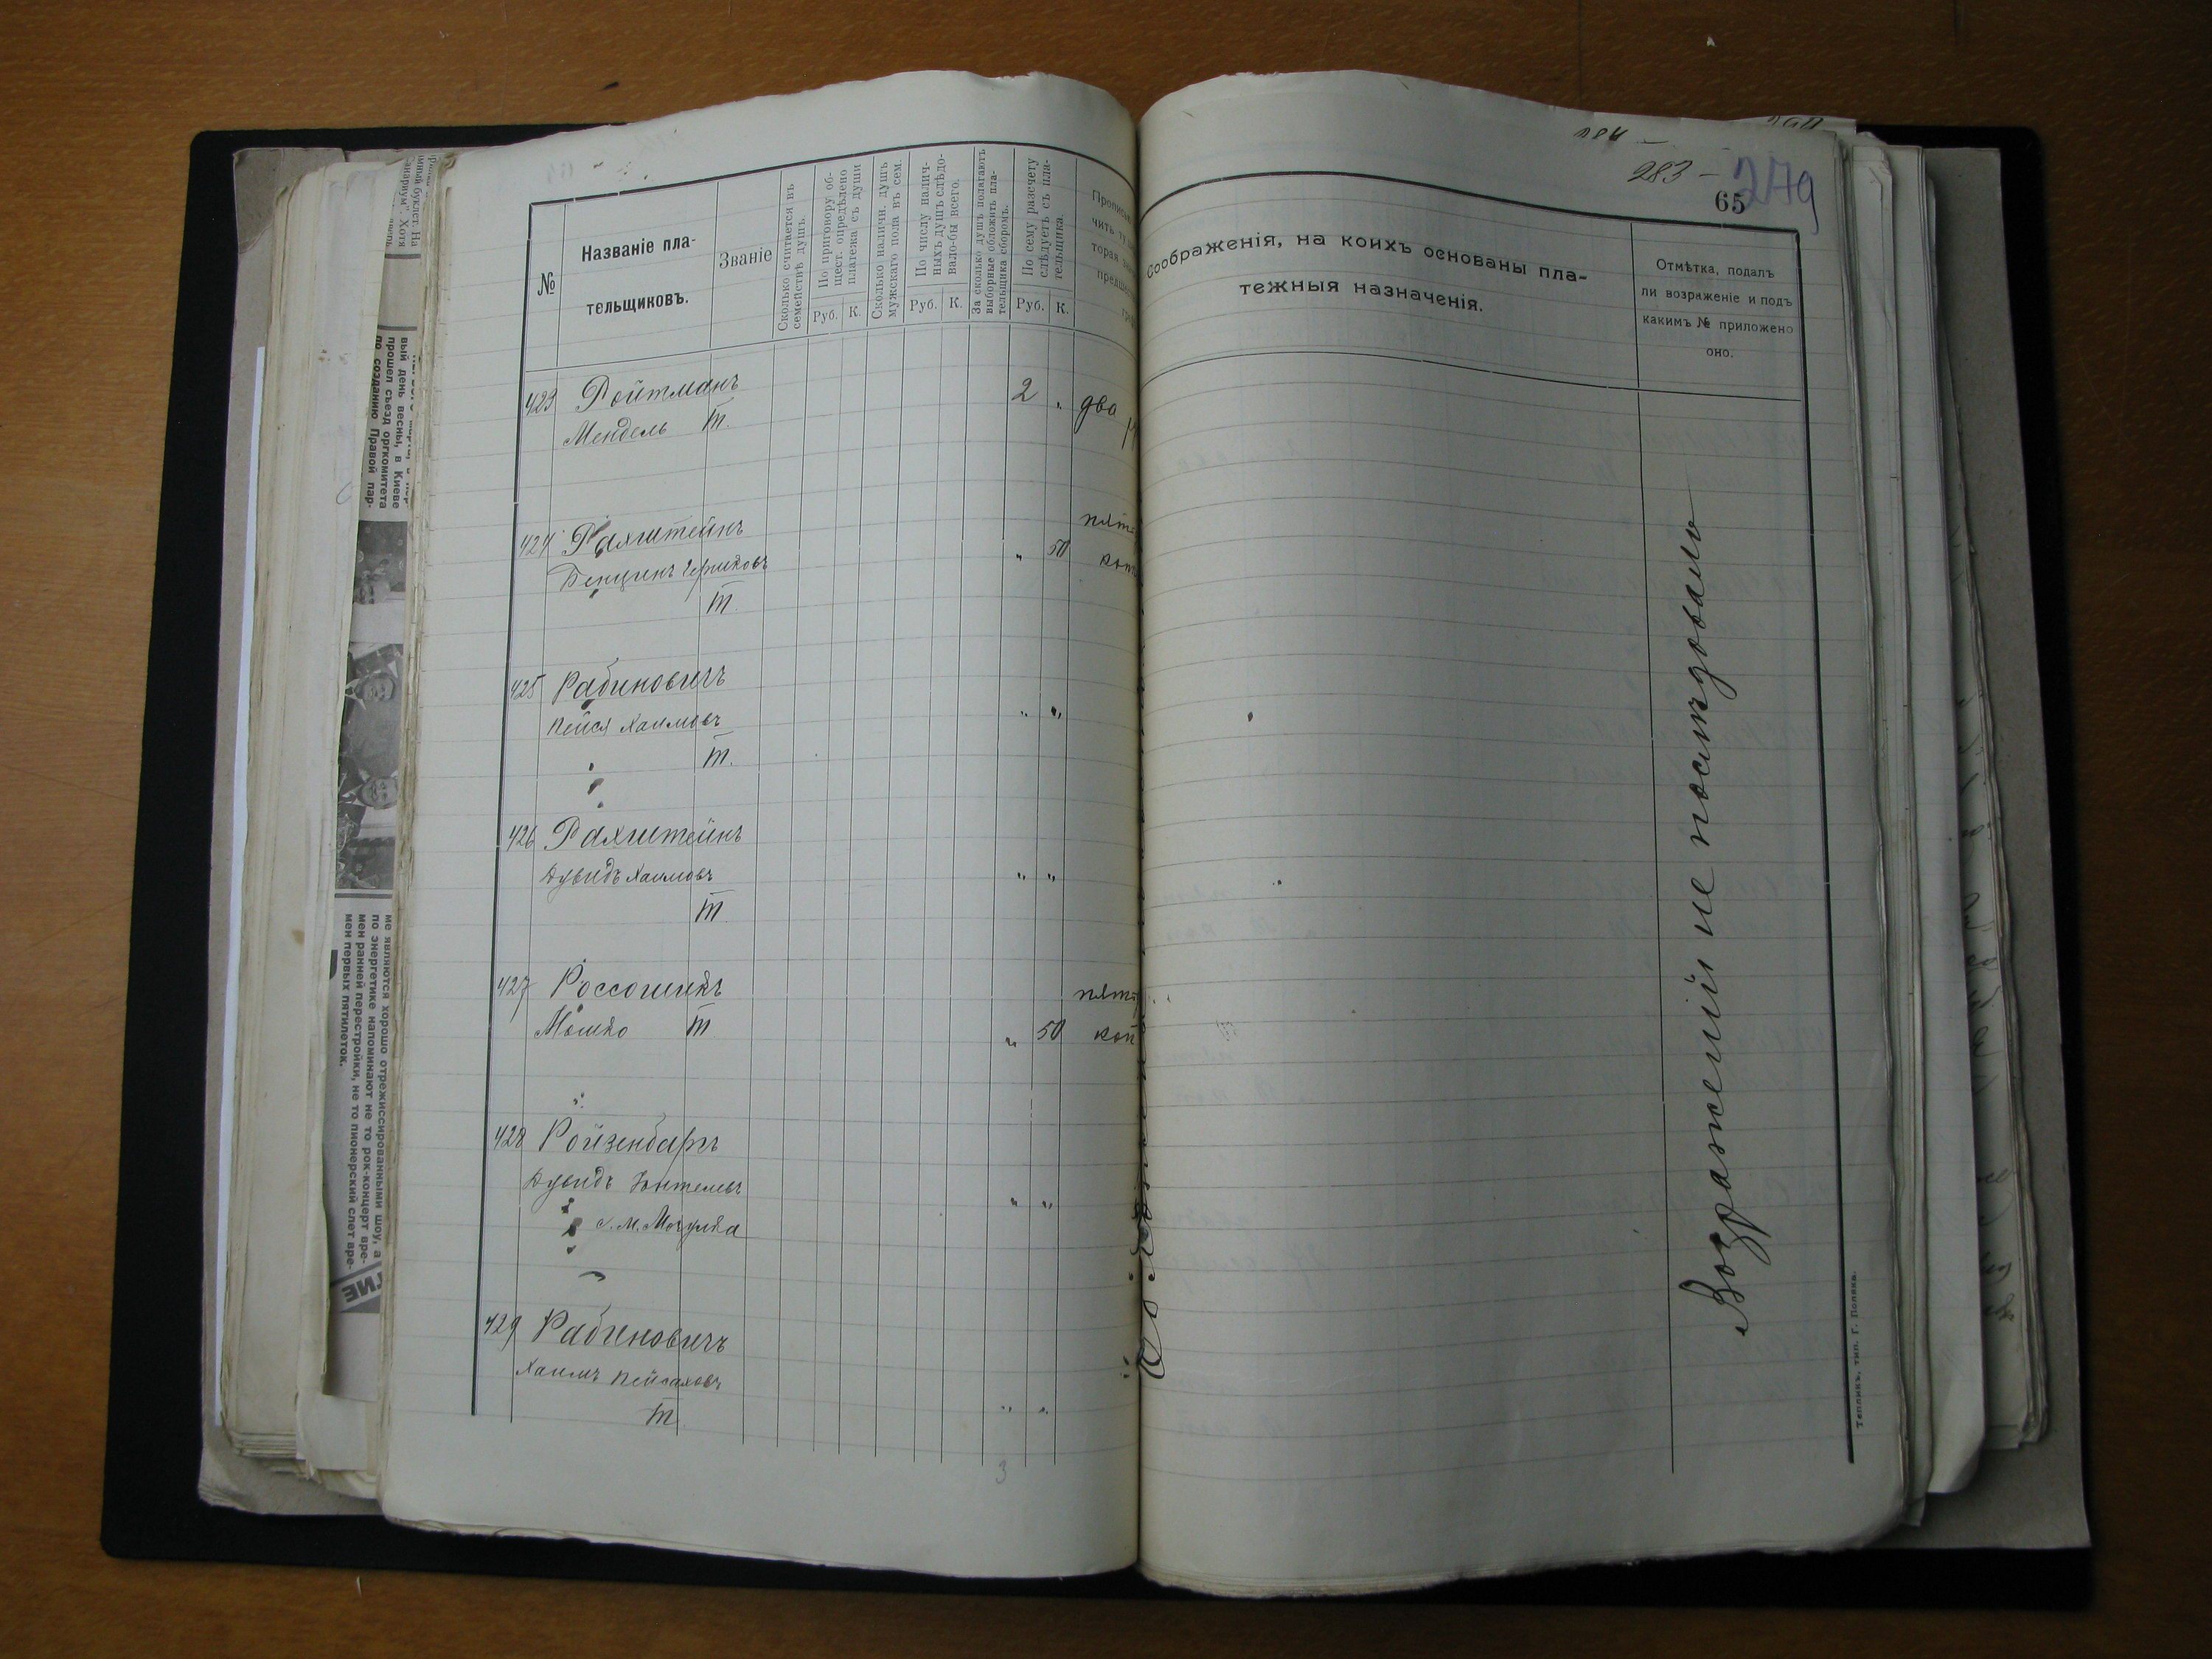 284 —
283 —
279
65
№
Названіе пла-
тельщиковъ.
Званіе
Сколько считается въ
семействѣ душъ.
По приговору об-
щест. опредѣлено
платежа съ души
Руб. К.
Сколько наличн. душъ
мужскаго пола въ сем.
По числу налич-
ныхъ душъ слѣдо-
вало-бы всего.
Руб. К.
За сколько душъ полагаютъ
выборные обложить пла-
тельщика сборомъ.
По сему разсчету
слѣдуетъ съ пла-
тельщика.
Руб. К.
Соображенія, на коихъ основаны пла-
тежныя назначенія.
Отмѣтка, подалъ
ли возраженіе и подъ
какимъ № приложено
оно.
423 Ройтманъ 2 " два
Мендель Т.
424 Рахштейнъ пять
Бенціонъ Гершковъ " 50 коп
Т.
425 Рабиновичъ
Пейся Хаимовъ " "
Т.
426 Рахштейнъ
Дувидъ Хаимовъ " "
Т
427 Россошикъ пять
Мошко Т " 50 коп
428 Ройзенбаргъ
Дувидъ Юнтелевъ " "
с. м. Могулка
429 Рабиновичъ
Хаимъ Пейсаховъ
Т. " "
3
Возраженій не послѣдовало
Тепликъ, тип. Г. Поляка.
вый день весны, в Киеве
прошел съезд оргкомитета
по созданию Правой пар-
ме являются хорошо отрежиссированными шоу, а
по энергетике напоминают не то рок-концерт вре-
мен ранней перестройки, не то пионерский слет вре-
мен первых пятилеток.